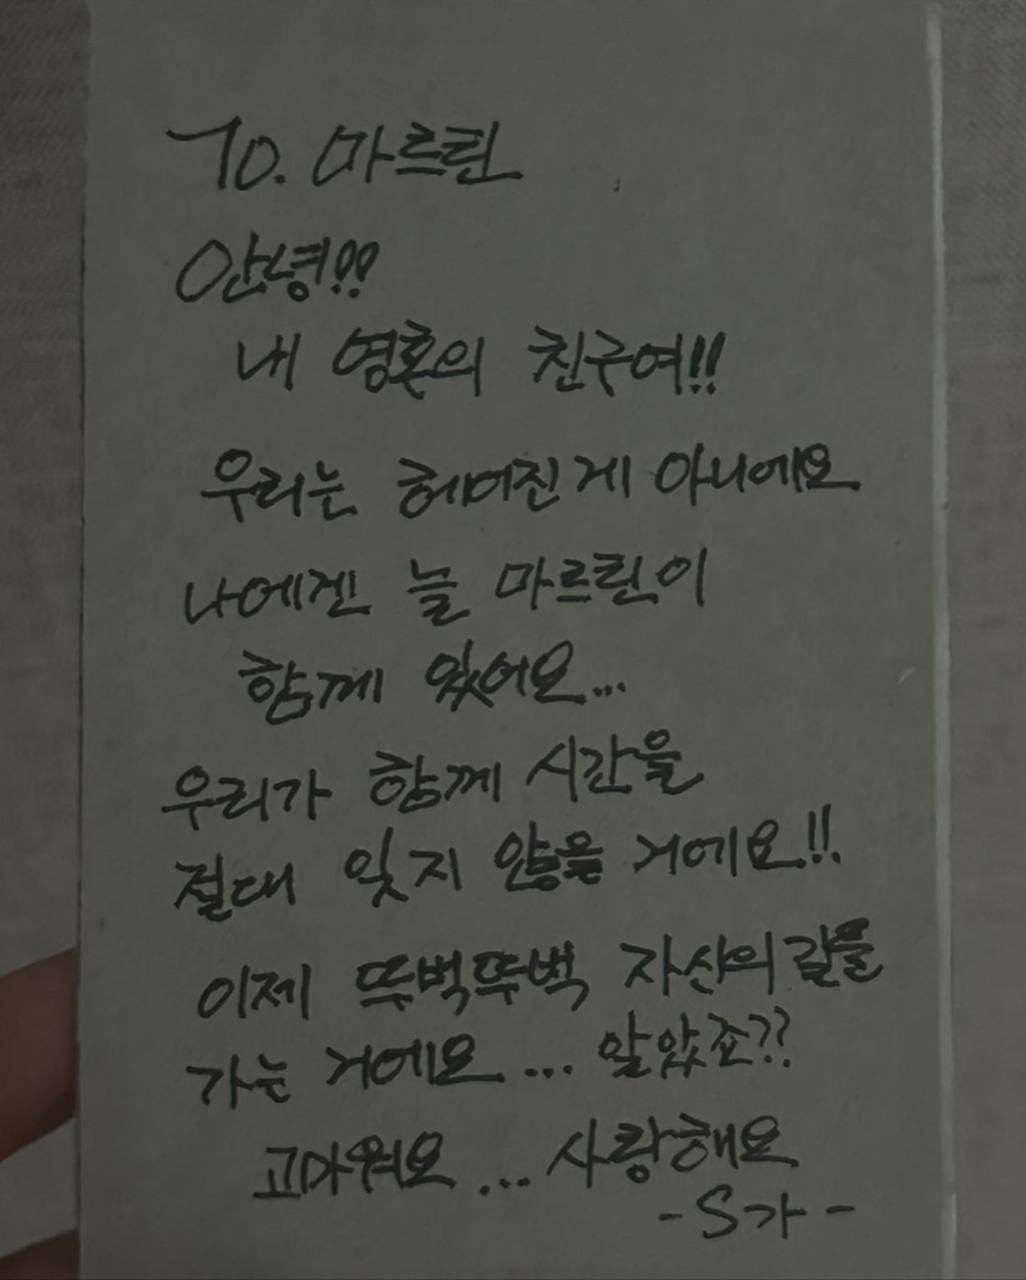 TO. 마르틴
안녕!!
내 영혼의 친구여!!
우리는 헤어진게 아니에요
나에겐 늘 마르틴이
함께 있어요...
우리가 함께 시간을
절대 잊지 않을 거에요!!
이제 뚜벅뚜벅 자신의 길을
가는 거에요... 알았죠??
고마워요... 사랑해요
-S가-